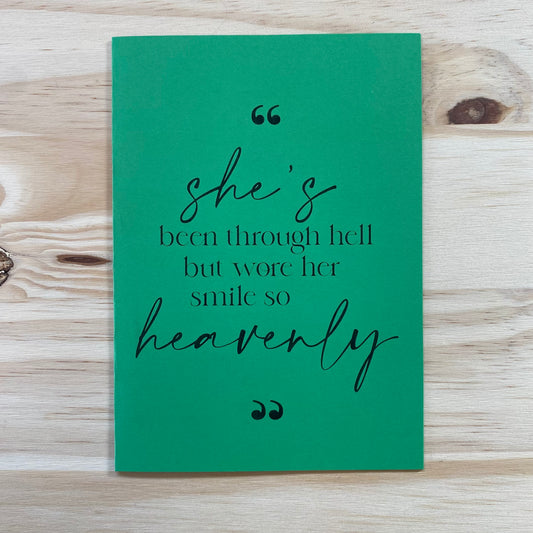 “
she's
been through hell
but wore her
smile so
heavenly
”